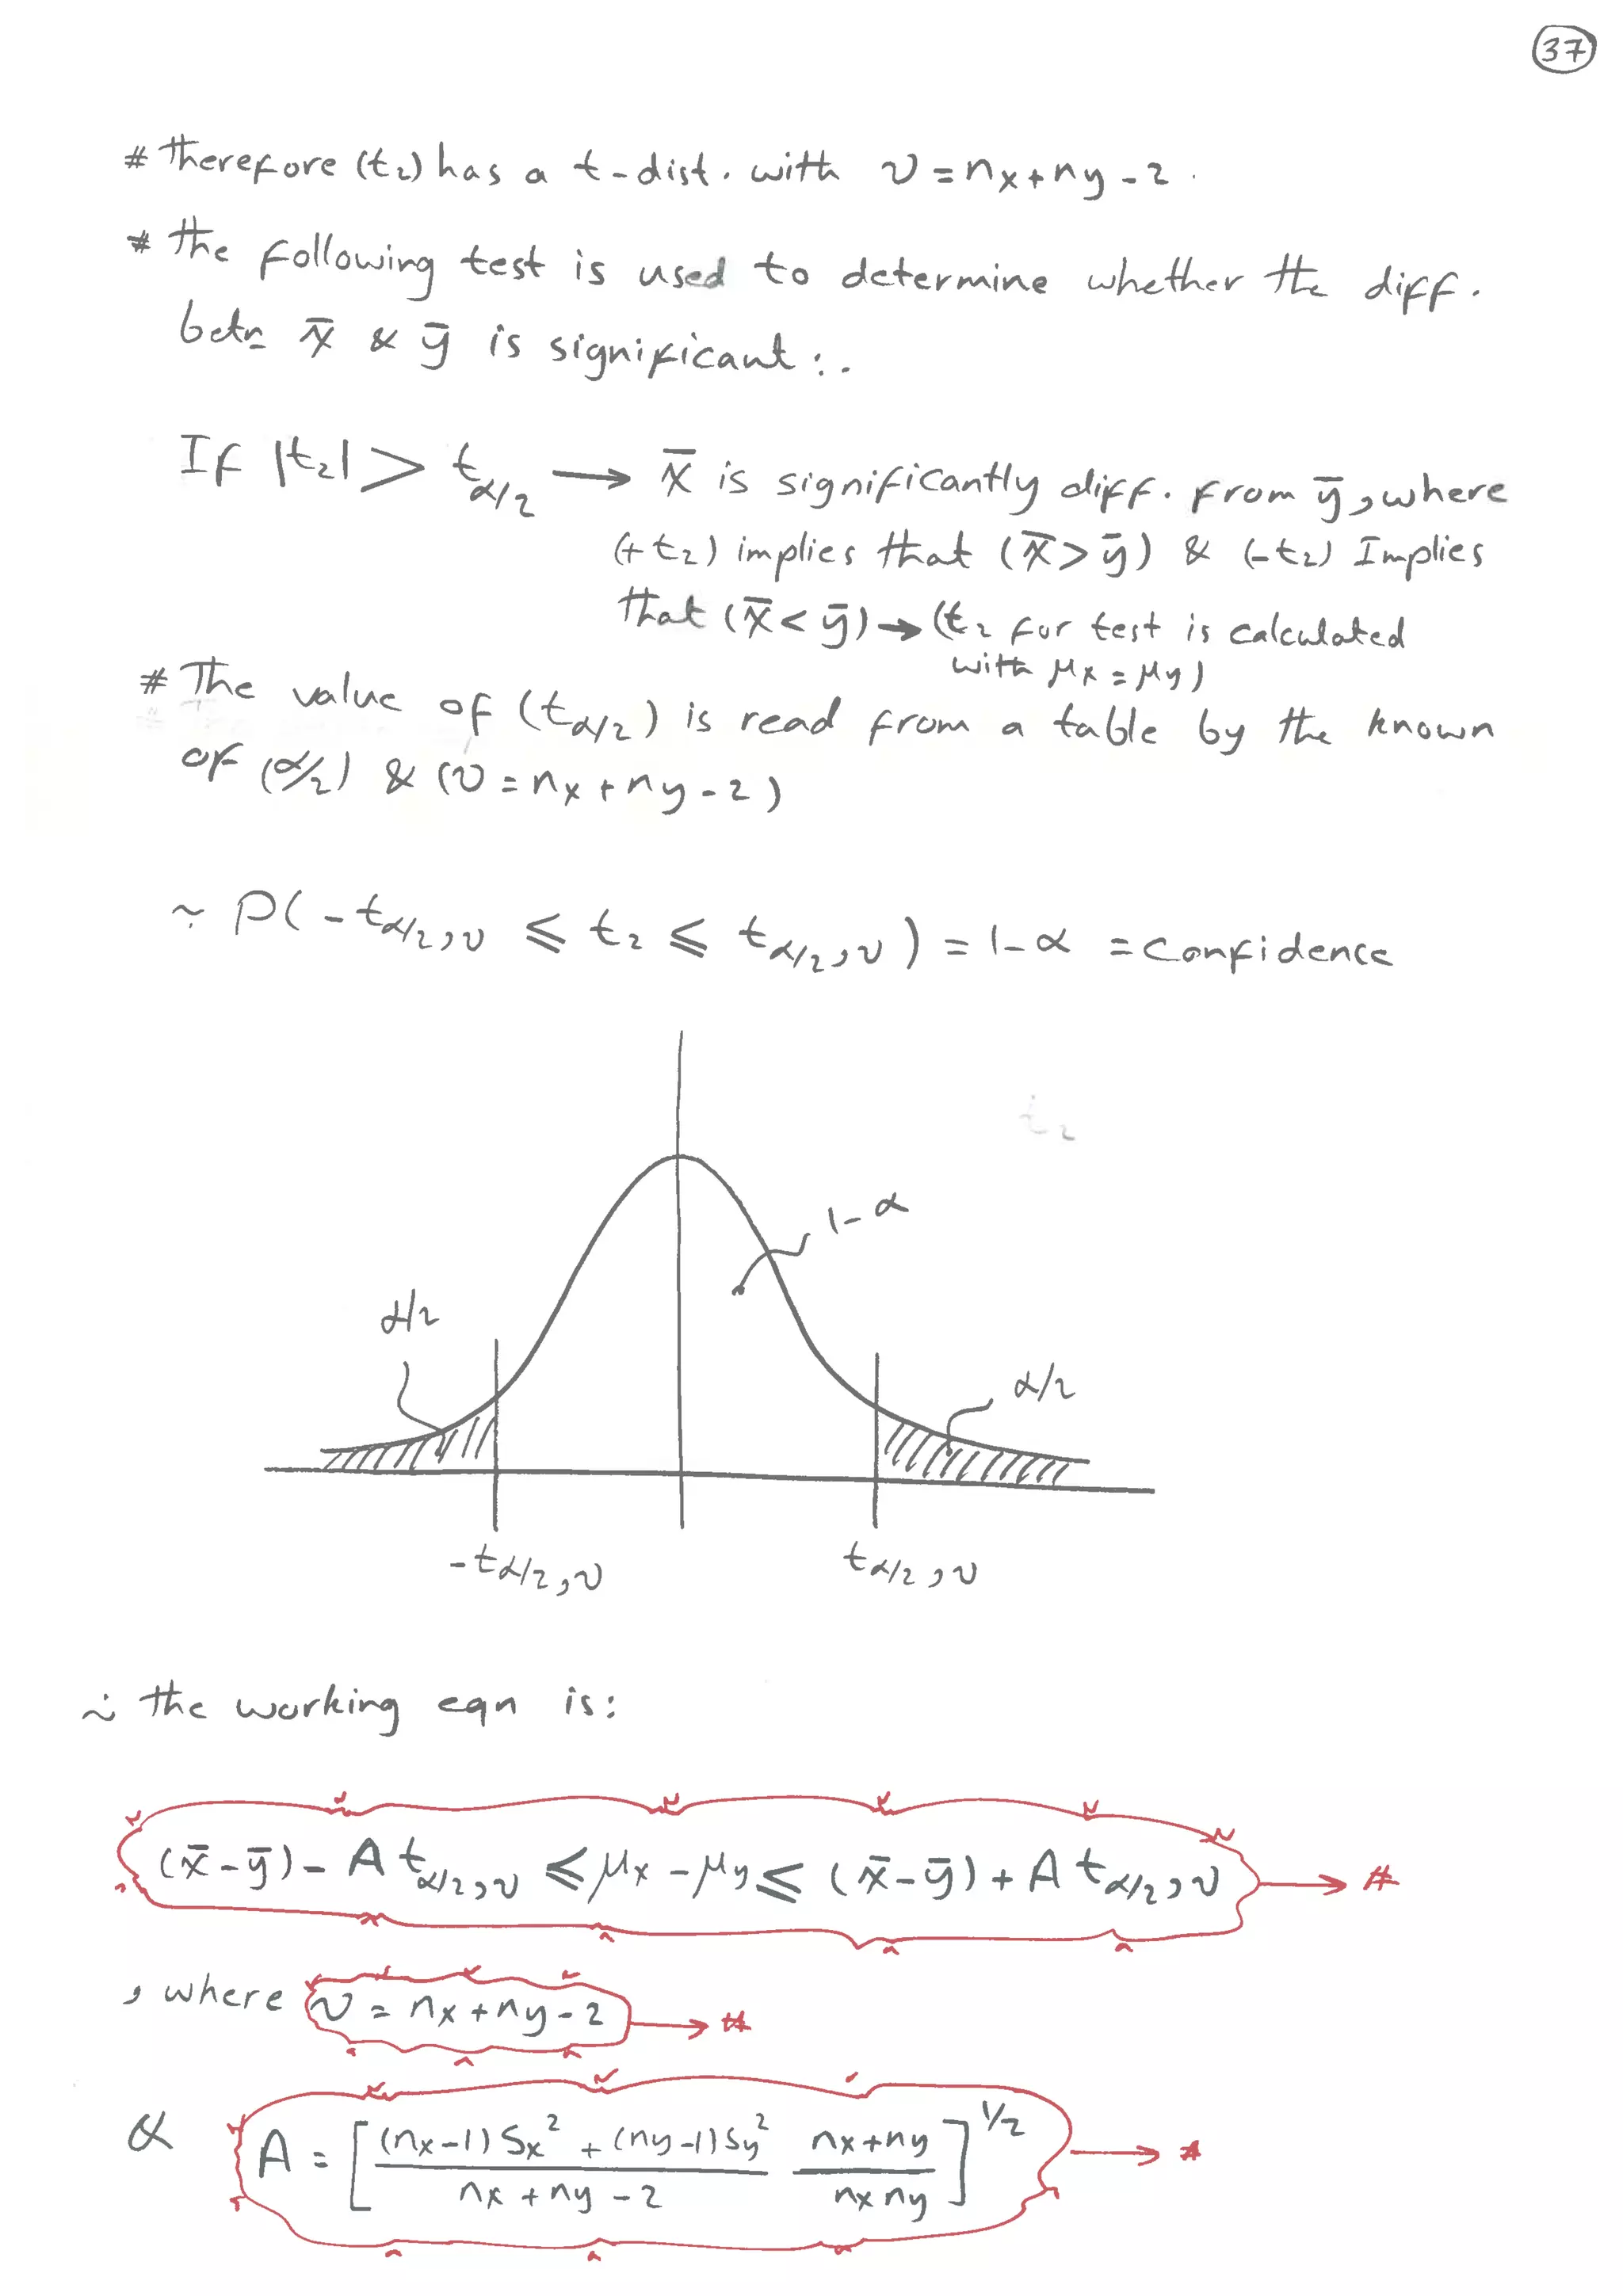 37
# Therefore (t₂) has a t-dist. with ν = nx + ny - 2.
* The following test is used to determine whether the diff.
betn x̄ & ȳ is significant:.
If |t₂| > tα/2 → x̄ is significantly diff. from ȳ, where
(+t₂) implies that (x̄ > ȳ) & (-t₂) Implies
that (x̄ < ȳ) → (t₂ for test is calculated
with μx = μy)
# The value of (tα/2) is read from a table by the known
of (α/2) & (ν = nx + ny - 2)
∴ P(-tα/2,ν ≤ t₂ ≤ tα/2,ν) = 1-α = Confidence
t₂
1-α
α/2
α/2
-tα/2,ν
tα/2,ν
∴ the working eqn is:
(x̄-ȳ) - A tα/2,ν ≤ μx - μy ≤ (x̄-ȳ) + A tα/2,ν → #
, where ν = nx + ny - 2 → #
& A = [ (nx-1) Sx² + (ny-1) Sy² / nx + ny - 2 nx + ny / nx ny ]^1/2 → #